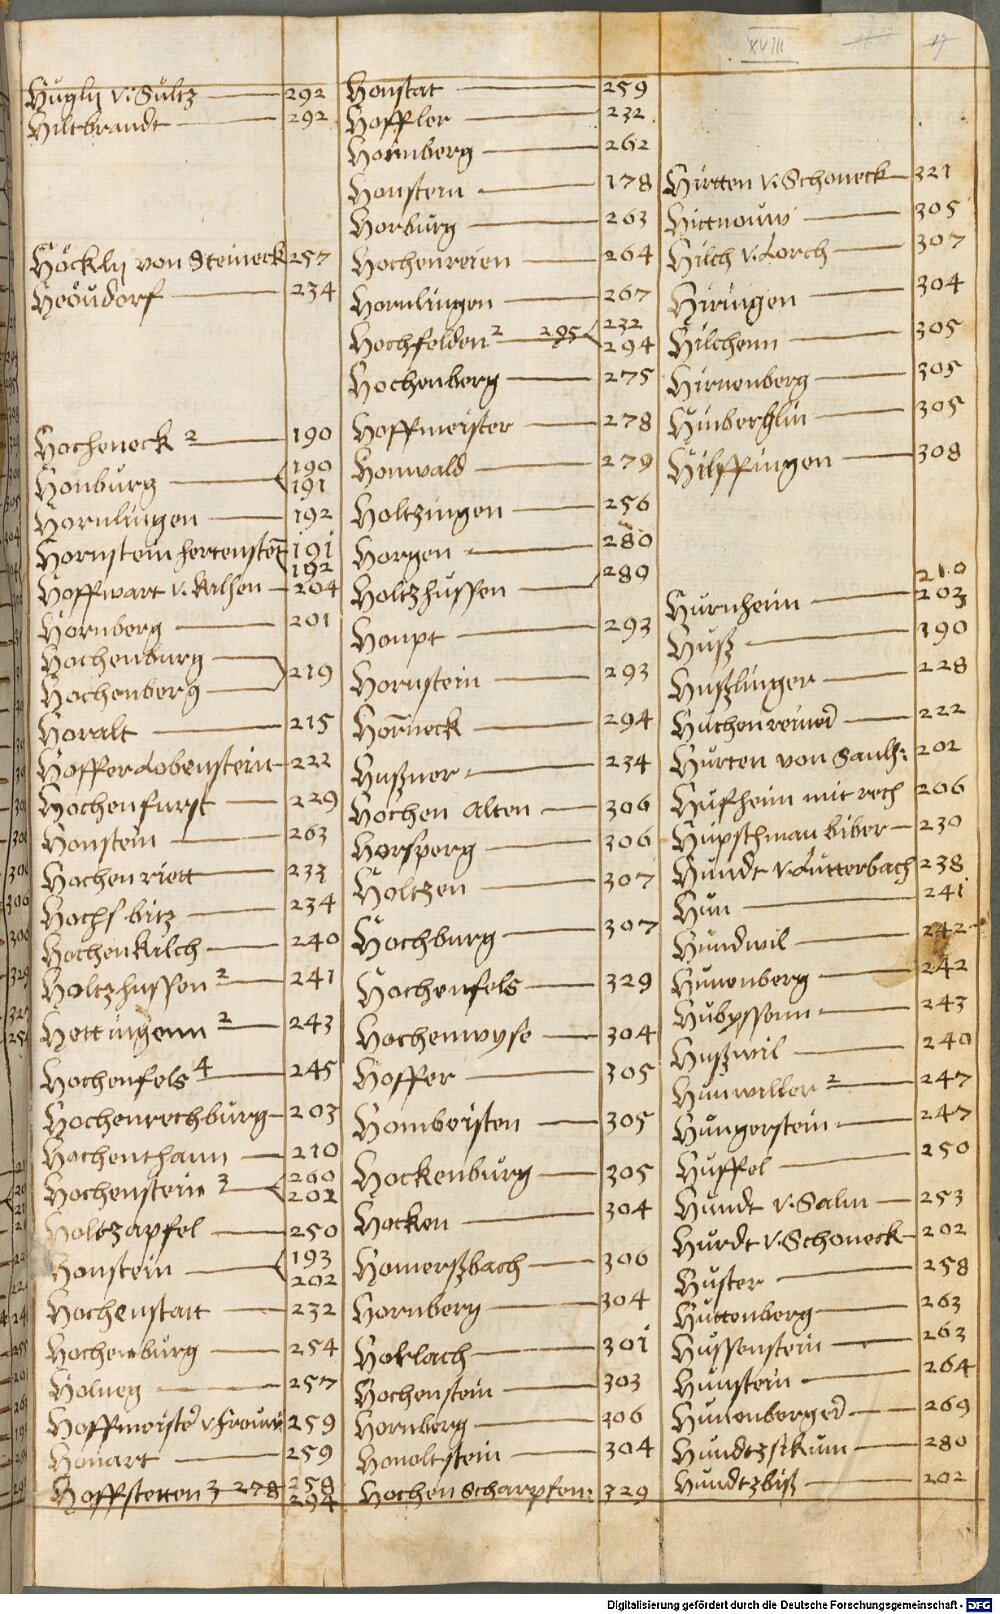 XVIII
17
Hugly v. Sultz 292
Hiltbrandt 292
Höckly von Steineck 257
Heöudorf 234
Hocheneck 2 190
Honburg 190 191
Hornlingen 192
Hornstein hertenstein 191 192
Hoffwart v. Kilhen 204
Hornberg 201
Hochenburg
Hochenberg 219
Horalt 215
Hoffer Lobenstein 222
Hochenfurst 229
Honstein 263
Hochenriett 233
Hochs bitz 234
Hochenkilch 240
Holtzhussen 2 241
Hettingenn 2 243
Hochenfels 4 245
Hochenrechburg 203
Hochenthann 210
Hochenstein 3 260 202
Holtzapfel 250
Honstein 193 202
Hochenstatt 232
Hochenburg 254
Holneg 257
Hoffmeister v. Frouw 259
Honart 259
Hoffstetten 3 278 258 294
Honstat 259
Hoffler 232
Hornberg 262
Honstein 178
Horburg 263
Hochenreien 264
Hornlingen 267
Hochfelden 2 295 232 294
Hochenberg 275
Hoffmeister 278
Honwald 279
Holtzingen 256
Horgen 280
Holtzhussen 289
Houpt 293
Hornstein 293
Horneck 294
Hußner 234
Hochen Alten 306
Horsperg 306
Holtzen 307
Hochburg 307
Hochenfels 329
Hochenwyse 304
Hoffer 305
Hombeisten 305
Hockenburg 305
Hocken 304
Homerßbach 306
Hornberg 304
Horlach 301
Hochenstein 303
Hornberg 306
Honoltstein 304
Hochen Scharpfen: 329
Hirtten v. Schoneck 321
Hittnouw 305
Hilch v. Lorch 307
Hiringen 304
Hilchenn 305
Hirnenberg 305
Hinberglin 305
Hilffingen 308
210
Hurnheim 203
Huß 190
Hußlinger 228
Huchenreiner 222
Hurten von Saulh: 202
Hufheim mit rech 206
Hupschman biber 230
Hundt v. Lutterbach 238
Hun 241
Hundwil 242
Hunenberg 242
Hubyssenn 243
Hußwil 240
Hunwiller 2 247
Hungerstein 247
Huffel 250
Hundt v. Salm 253
Hurdt v. Schoneck 202
Huster 258
Huttenberg 263
Hussenstein 263
Hunstein 264
Hunenberger 269
Hundtzsikum 280
Hundtzbiß 202
Digitalisierung gefördert durch die Deutsche Forschungsgemeinschaft - DFG